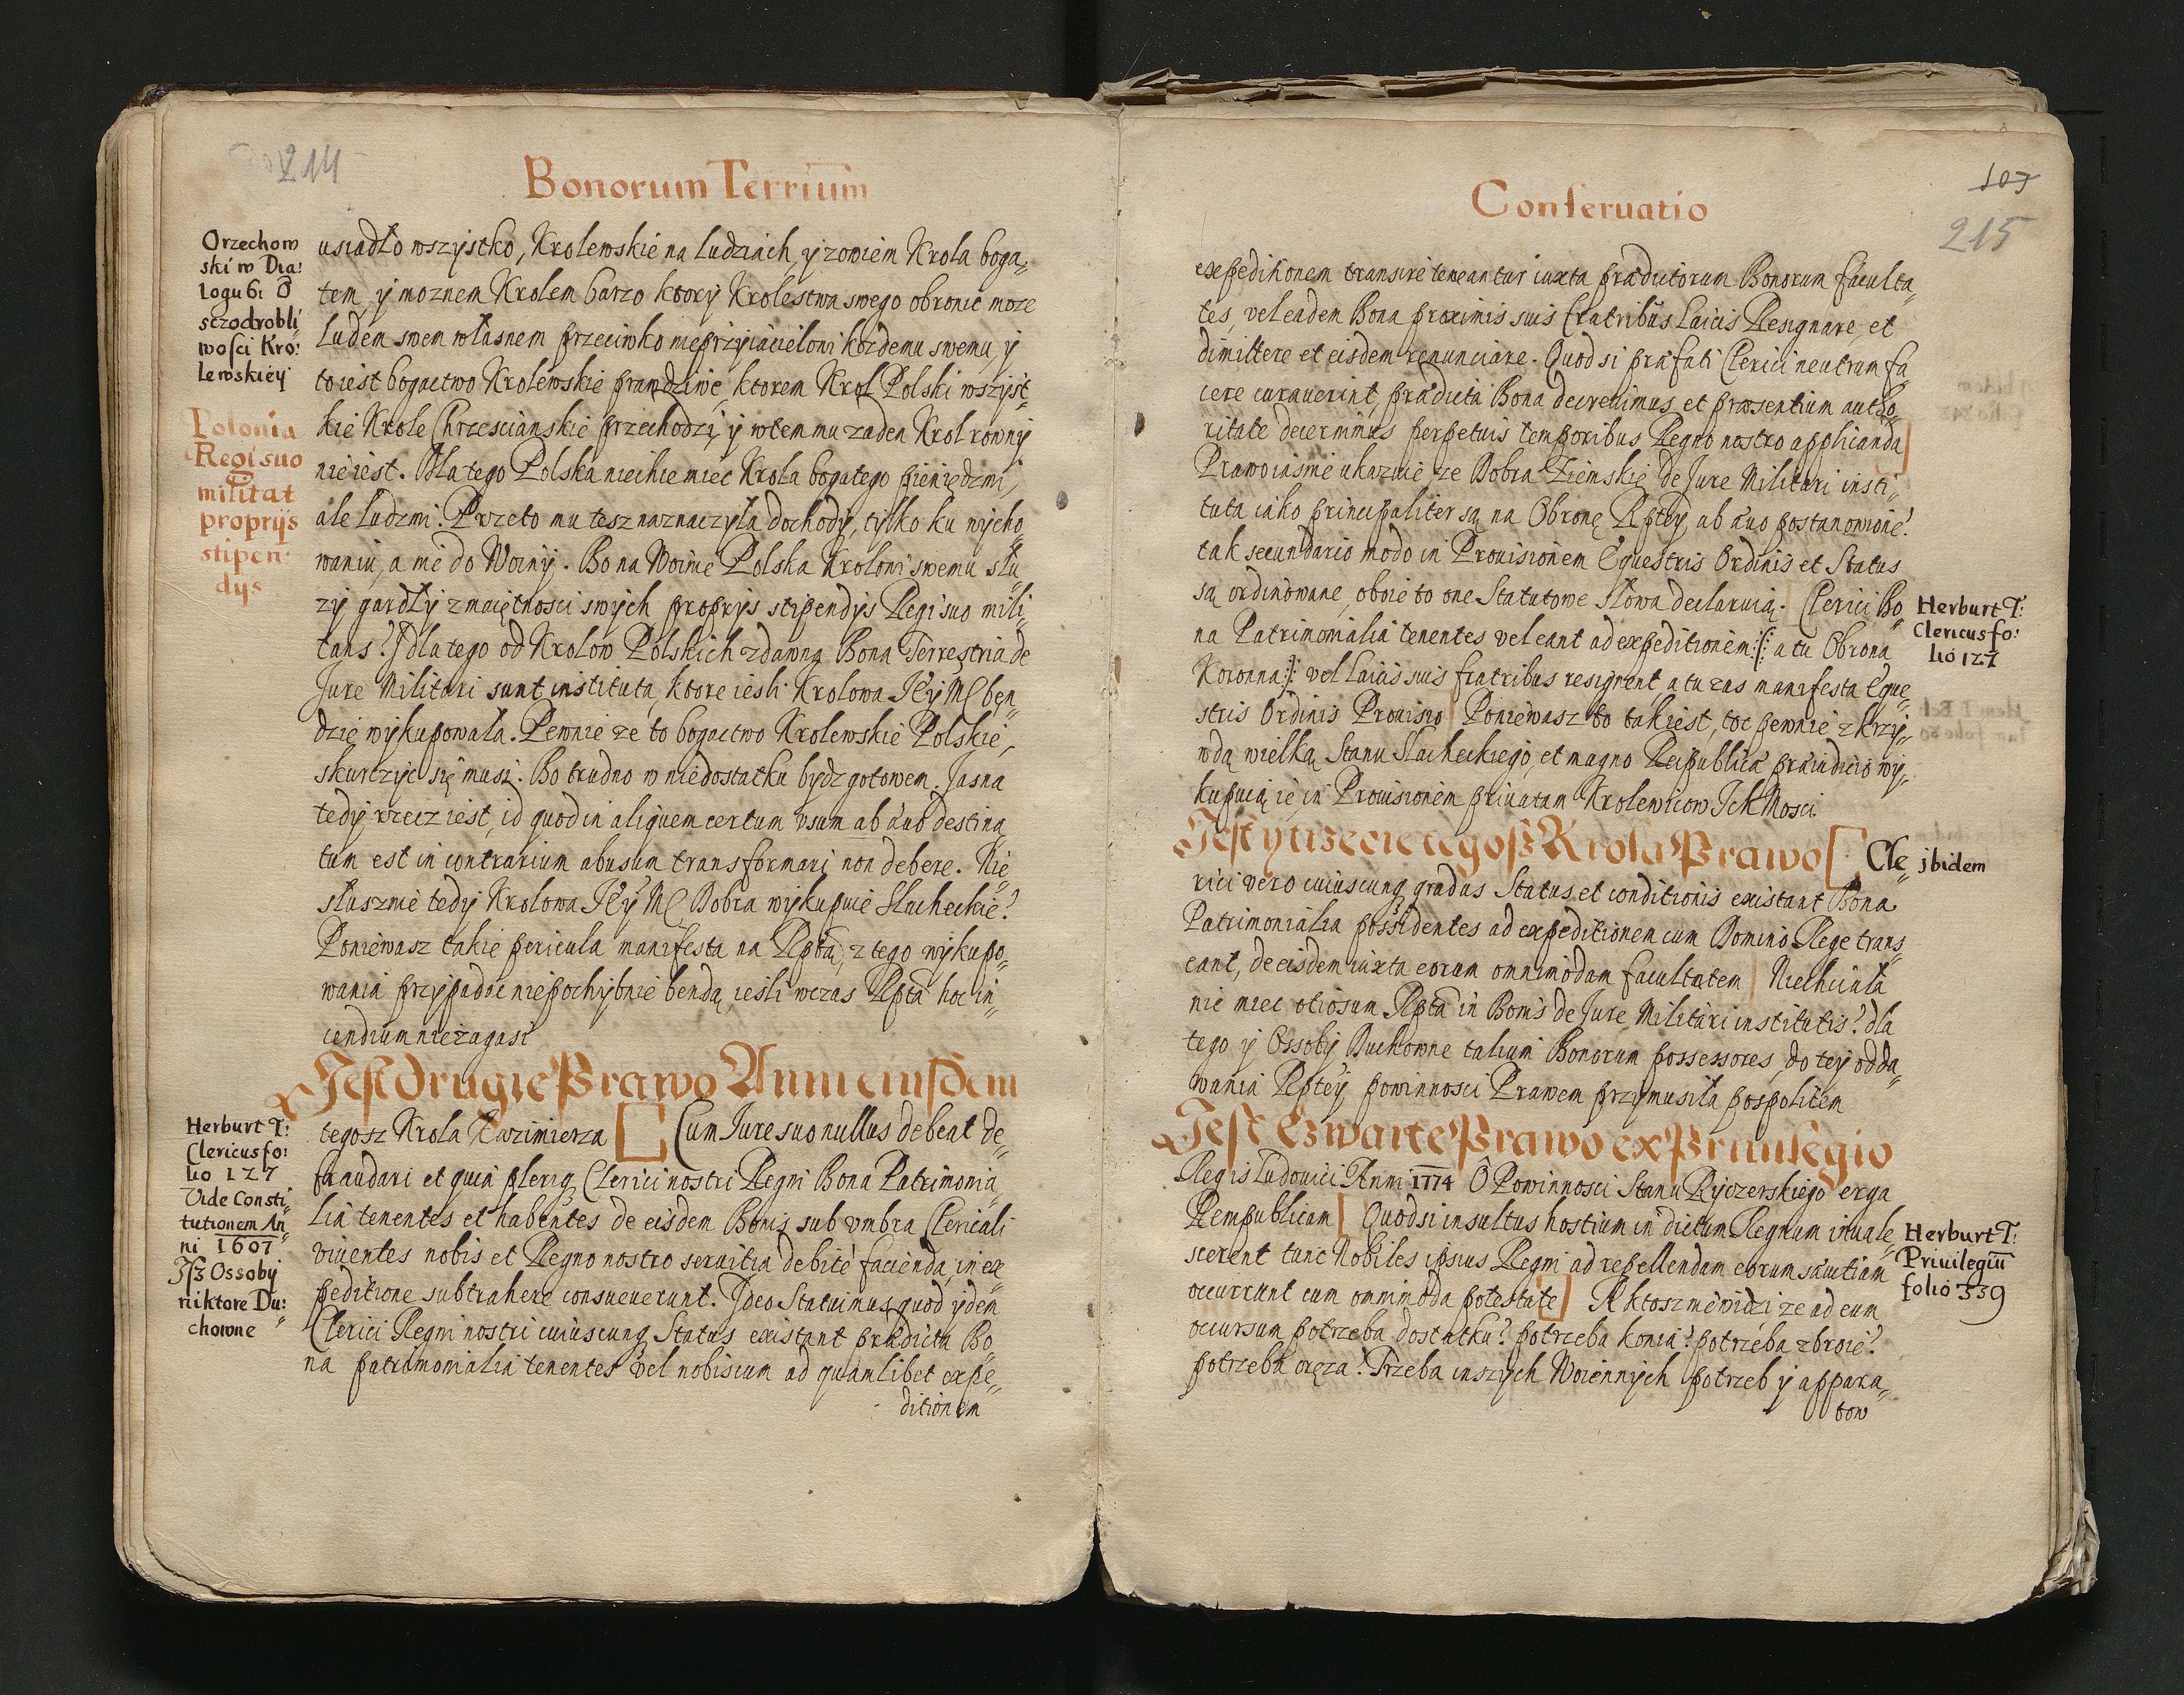 214
Bonorum Terriūm
Orzechow
ski w Dia:
logu 6: O
sczodrobli
wosci Kro:
lewskiey
usiadło wszystko, Krolewskie na ludziach, y zowiem Krola boga„
tem y moznem Krolem barzo ktory Krolestwa swego obronic moze
ludem swem własnem przeciwko nieprzyiacielowi kozdemu swemu, y
to iest bogactwo Krolewskie prawdziwe, ktorem Krol Polski wszyst„
kie Krole Chrzescianskie przechodzi, y wtem mu zaden Krol rowny
nie iest. Dla tego Polska niechce miec Krola bogatego pieniedzmi,
ale ludzmi. Przeto mu tesz naznaczyła dochody, tylko ku wycho„
waniu, a nie do Woiny. Bo na Woinie Polska Krolowi swemu słu„
zy gardły z maiętnosci swych proprijs stipendijs Regi suo mili„
tans? J dla tego od Krolow Polskich zdawna Bona Terrestria de
Jure Militari sunt instituta, ktore iesli Krolowa JEy M ben„
dzie wykupowała. Pewnie ze to bogactwo Krolewskie Polskie,
skurczyc się musi. Bo trudno w niedostatku bydz gotowem. Jasna
tedy rzecz iest, id quod in aliquem certum vsum ab æuo destina
tum est in contrarium abusum transformari non debere. Nie
słusznie tedy Krolowa JEy M Dobra wykupuie Slacheckie?
Poniewasz takie pericula manifesta na Rptą, z tego wykupo„
wania przypadac niepochybnie bendą, iesli wczas Rpta hoc in„
cendium nie zagasi
Polonia
Regi suo
militat
proprijs
stipen:
dijs
Jest drugie Prawo Anni eiusdem
tegosz Krola Kazimierza [ Cum Jure suo nullus debeat de„
fraudari et quia pleriq Clerici nostri Regni Bona Patrimonia„
lia tenentes et habentes de eisdem Bonis sub vmbra Clericali
viuentes nobis et Regno nostro seruitia debite facienda, in ex„
peditione subtrahere consueuerunt. Jdeo Statuimus quod ijdem
Clerici Regni nostri cuiuscunq Status existant prædicta Bo„
na patrimonialia tenentes vel nobiscum ad quamlibet expe„
ditionem
Herburt T:
Clericus fo:
lio 127
Vide Consti„
tutionem An„
ni 1607
Jsz Ossoby
niktore Du:
chowne
107
215
Conseruatio
expeditionem transire teneantur iuxta prædictorum Bonorum faculta„
tes, vel eadem Bona proximis suis fratribus Laicis Resignare, et
dimittere et eisdem renunciare. Quod si præfati Clerici neutrum fa„
cere curauerint, prædicta Bona decreuimus, et præsentium autho„
ritate decernimus perpetuis temporibus Regno nostro applicanda]
Prawo iasnie ukazuie, ze Dobra Ziemskie de Jure Militari insti„
tuta iako principaliter są na Obronę Rptey ab æuo postanowione?
tak secundario modo in Prouisionem Equestris Ordinis et Status
są ordinowane, oboie to one Statutowe słowa declaruią. [Clerici Bo„
na Patrimonialia tenentes vel eant ad expeditionem :/: a tu Obrona
Koronna :/: vel Laicis suis fratribus resignent, a tu zas manifesta Eque„
stris Ordinis Prouisio] Poniewasz to tak iest, toc pewnie z krzy„
wdą wielką Stanu Slacheckiego, et magno Reipublicæ præiudicio wy„
kupuią ie in Prouisionem priuatam Krolewicow Jch Mosci.
Herburt T:
Clericus fo:
lio 127
Jest y trzecie tegosz Krola Prawo [ Cle„
rici vero cuiuscunq gradus Status et conditionis existant Bona
Patrimonialia possidentes ad expeditionem cum Domino Rege trans„
eant, de eisdem iuxta eorum omnimodam facultatem] Niechciała
nic miec otiosum Rpta in Bonis de Jure Militari institutis? dla
tego y Ossoby Duchowne talium Bonorum possessores, do tey odda„
wania Rptey powinnosci Prawem przymusiła pospolitem
jbidem
Jest Czwarte Prawo ex Priuilegio
Regis Ludouici Anni 1774 O Powinnosci Stanu Ryczerskiego erga
Rempublicam [ Quod si insultus hostium in dictum Regnum inuale„
scerent tunc Nobiles ipsius Regni ad repellendam eorum sæuitiam
occurrant cum omnimoda potestate] A ktosz niewidzi ze ad eum
occursum potrzeba dostatku? potrzeba konia? potrzeba zbroie?
potrzeba oręza? Trzeba inszych Woiennych potrzeb y appara„
tow
Herburt T:
Priuilegiū
folio 339